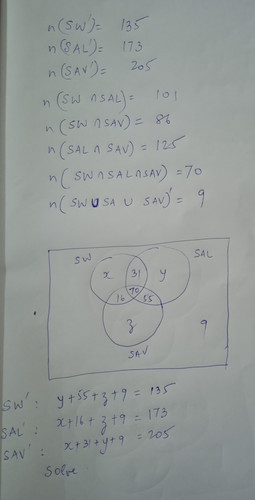 n(SW') = 135
n(SAL') = 173
n(SAV') = 205
n(SW ∩ SAL) = 101
n(SW ∩ SAV) = 86
n(SAL ∩ SAV) = 125
n(SW ∩ SAL ∩ SAV) = 70
n(SW U SA U SAV)' = 9
SW SAL
x 31 y
70
16 55
z 9
SAV
SW' : y+55+z+9 = 135
SAL' : x+16+z+9 = 173
SAV' : x+31+y+9 = 205
Solve